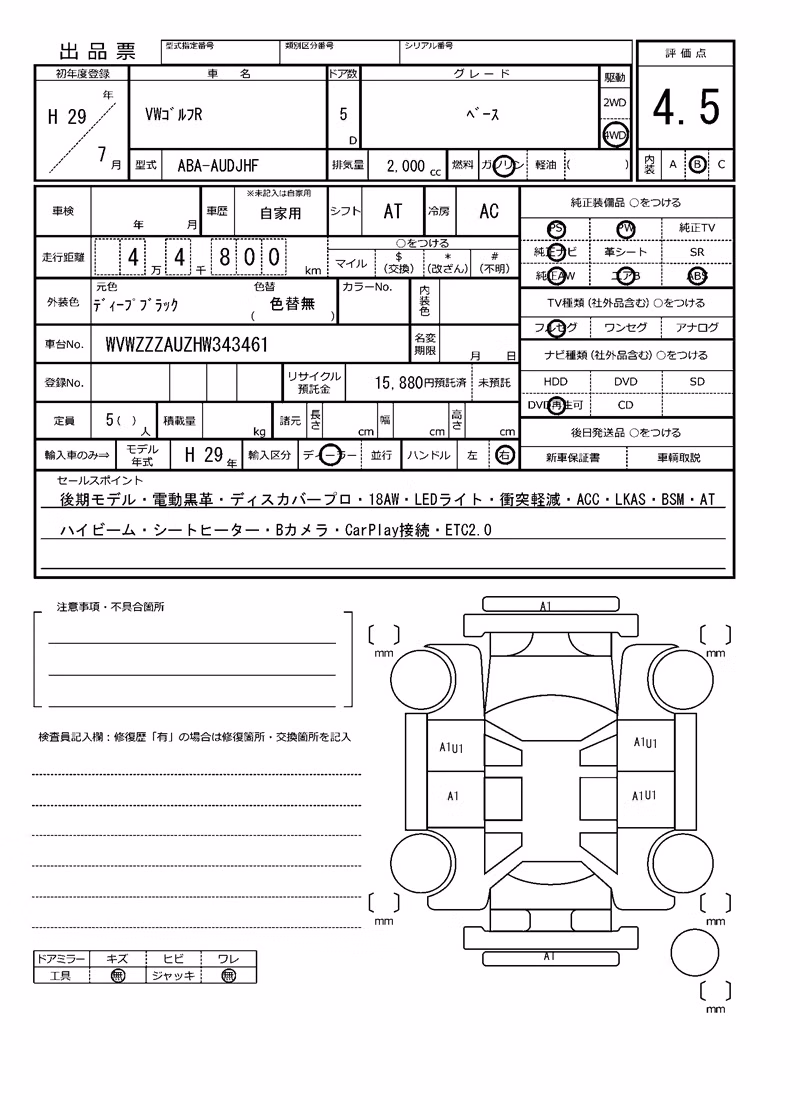 出品票
型式指定番号
類別区分番号
シリアル番号
評価点
4.5
内装 A B C
初年度登録
車 名
ドア数
グレード
駆動
H 29 年
7 月
VWゴルフR
5 D
ベース
2WD
4WD
型式
ABA-AUDJHF
排気量
2,000 cc
燃料
ガソリン
軽油
( )
車検
年 月
車歴
※未記入は自家用
自家用
シフト
AT
冷房
AC
純正装備品 ○をつける
PS
PW
純正TV
純正ナビ
革シート
SR
純正AW
エアB
ABS
走行距離
4 万 4 千 8 0 0 km
○をつける
マイル
$ (交換)
* (改ざん)
# (不明)
外装色
元色
ディープブラック
色替
( 色替無 )
カラーNo.
内装色
TV種類 (社外品含む) ○をつける
フルセグ
ワンセグ
アナログ
車台No.
WVWZZZAUZHW343461
名変期限
月 日
ナビ種類 (社外品含む) ○をつける
HDD
DVD
SD
DVD再生可
CD
登録No.
リサイクル預託金
15,880円預託済
未預託
定員
5( ) 人
積載量
kg
諸元
長さ
cm
幅
cm
高さ
cm
後日発送品 ○をつける
新車保証書
車輌取説
輸入車のみ⇒
モデル年式
H 29 年
輸入区分
ディーラー
並行
ハンドル
左
右
セールスポイント
後期モデル・電動黒革・ディスカバープロ・18AW・LEDライト・衝突軽減・ACC・LKAS・BSM・AT
ハイビーム・シートヒーター・Bカメラ・CarPlay接続・ETC2.0
注意事項・不具合箇所
検査員記入欄：修復歴「有」の場合は修復箇所・交換箇所を記入
A1
mm
mm
A1U1
A1U1
A1
A1U1
mm
mm
A1
mm
ドアミラー
キズ
ヒビ
ワレ
工具
無
ジャッキ
無